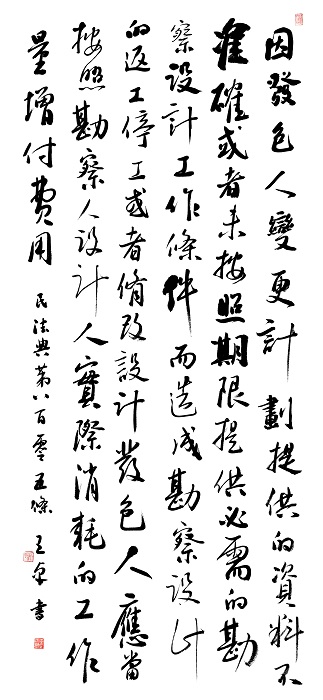 因發包人變更計劃提供的資料不
準確或者未按照期限提供必需的勘
察設計工作條件而造成勘察設計
的返工停工或者修改設計發包人應當
按照勘察人設計人實際消耗的工作
量增付費用
民法典第八百零五條 王卓書